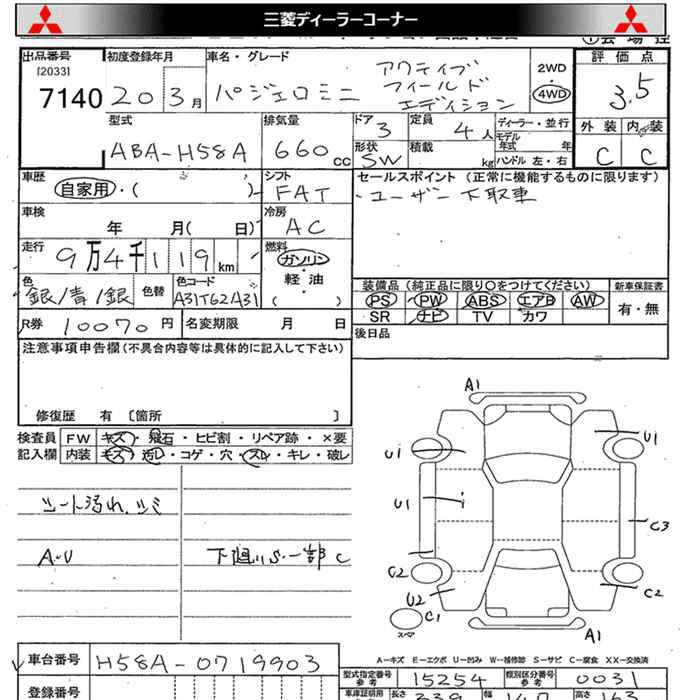 三菱ディーラーコーナー
出品番号 初度登録年月 車名・グレード 評価点
[2033]
7140 20 3月 パジェロミニ アクティブ フィールド エディション 2WD 4WD 3.5
外装 内装
C C
型式 排気量 ドア 定員 ディーラー・並行
ABA-H58A 660cc 3 4人 モデル年式 年
形状 積載 kg ハンドル 左・右
SW
車歴 シフト セールスポイント (正常に機能するものに限ります)
自家用・( ) FAT ・ユーザー下取車
車検 冷房
年 月( 日) AC
走行 燃料
9万4千119km ガソリン・軽油・( )
色 色替 色コード 装備品 (純正品に限り○をつけてください) 新車保証書
銀/青/銀 A31T62A31 PS PW ABS エアB AW 有・無
SR ナビ TV カワ
R券 10070円 名変期限 月 日 後日品
注意事項申告欄(不具合内容等は具体的に記入して下さい)
修復歴 有 〔箇所 〕
検査員 FW キズ・飛石・ヒビ割・リペア跡・×要
記入欄 内装 キズ・汚れ・コゲ・穴・スレ・キレ・破レ
シート汚れ、シミ
A・U 下廻りS・一部C
A1
U1 U1
U1 C3
C2 C2
U2 C1
スペア
A1
A-キズ E-エクボ U-凹み W-補修跡 S-サビ C-腐食 XX-交換済
車台番号 H58A-0719903
型式指定番号 参考 15254 類別区分番号 参考 0031
登録番号
車庫証明用 長さ 339 幅 147 高さ 163